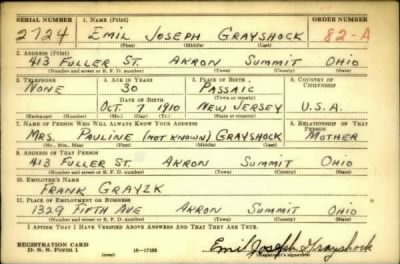 SERIAL NUMBER 1. NAME (Print) ORDER NUMBER
2724 EMIL JOSEPH GRAYSHOCK 82-A
(First) (Middle) (Last)
2. ADDRESS (Print)
413 FULLER ST. AKRON SUMMIT OHIO
(Number and street or R. F. D. number) (Town) (County) (State)
3. TELEPHONE 4. AGE IN YEARS 5. PLACE OF BIRTH 6. COUNTRY OF CITIZENSHIP
NONE 30 PASSAIC
DATE OF BIRTH (Town or county)
OCT. 7 1910 NEW JERSEY U.S.A.
(Exchange) (Number) (Mo.) (Day) (Yr.) (State or country)
7. NAME OF PERSON WHO WILL ALWAYS KNOW YOUR ADDRESS 8. RELATIONSHIP OF THAT PERSON
MRS. PAULINE (NOT KNOWN) GRAYSHOCK MOTHER
(Mr., Mrs., Miss) (First) (Middle) (Last)
9. ADDRESS OF THAT PERSON
413 FULLER ST. AKRON SUMMIT OHIO
(Number and street or R. F. D. number) (Town) (County) (State)
10. EMPLOYER'S NAME
FRANK GRAYZK
11. PLACE OF EMPLOYMENT OR BUSINESS
1329 FIFTH AVE AKRON SUMMIT OHIO
(Number and street or R. F. D. number) (Town) (County) (State)
I AFFIRM THAT I HAVE VERIFIED ABOVE ANSWERS AND THAT THEY ARE TRUE.
REGISTRATION CARD
D. S. S. Form 1 (over) 16-17105 Emil Joseph Grayshock
(Registrant's signature)